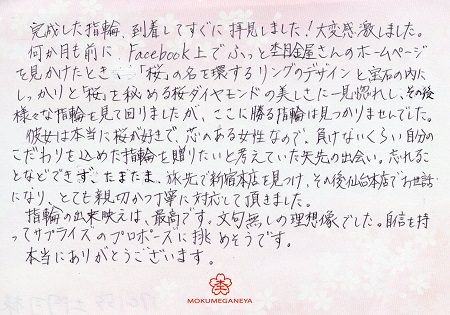 完成した指輪、到着してすぐに拝見しました！大変感激しました。
何か月も前に、Facebook上でふっと杢目金屋さんのホームページ
を見かけたとき、「桜」の名を環するリングのデザインと宝石の内に
しっかりと「桜」を秘める桜ダイヤモンドの美しさに一見惚れし、その後
様々な指輪を見て回りましたが、ここに勝る指輪は見つかりませんでした。
彼女は本当に桜が好きで、芯のある女性なので、負けないくらい自分の
こだわりを込めた指輪を贈りたいと考えていた矢先の出会い。忘れるこ
となどできず、たまたま、旅先で新宿本店を見つけ、その後仙台本店でお世話
になり、とても親切かつ丁寧に対応して頂きました。
指輪の出来映えは、最高です。文句無しの理想像でした。自信を持
ってサプライズのプロポーズに挑めそうです。
本当にありがとうございます。
MOKUMEGANEYA